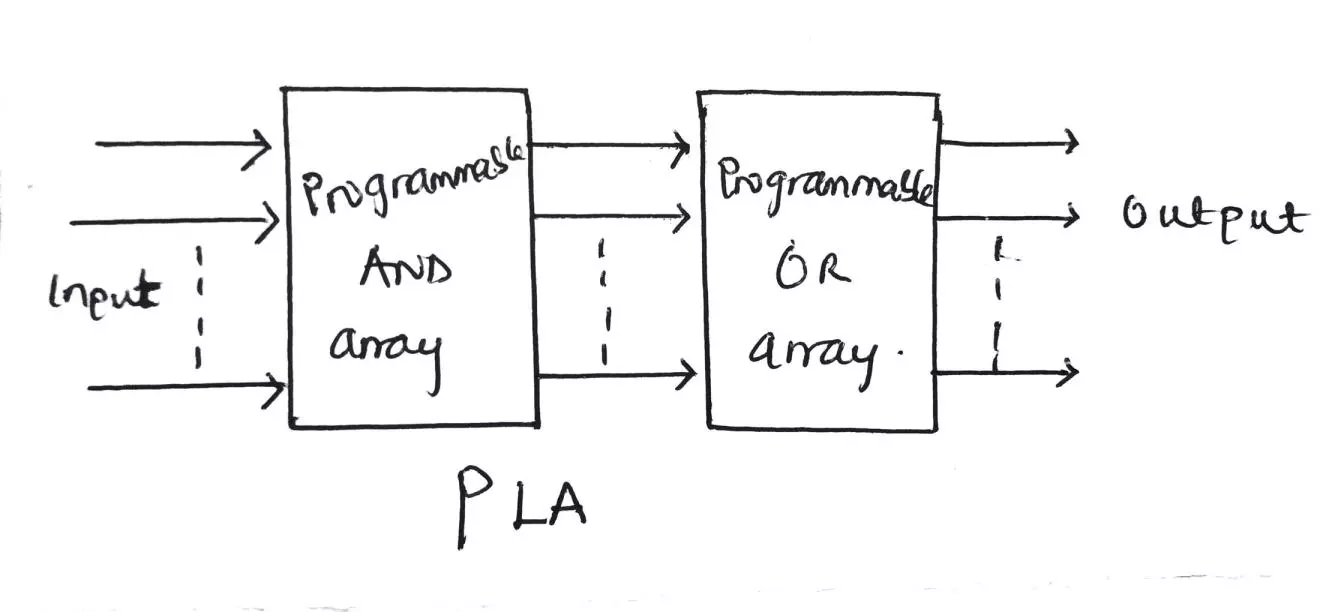 Input
Programmable
AND
array
Programmable
OR
array.
Output
PLA